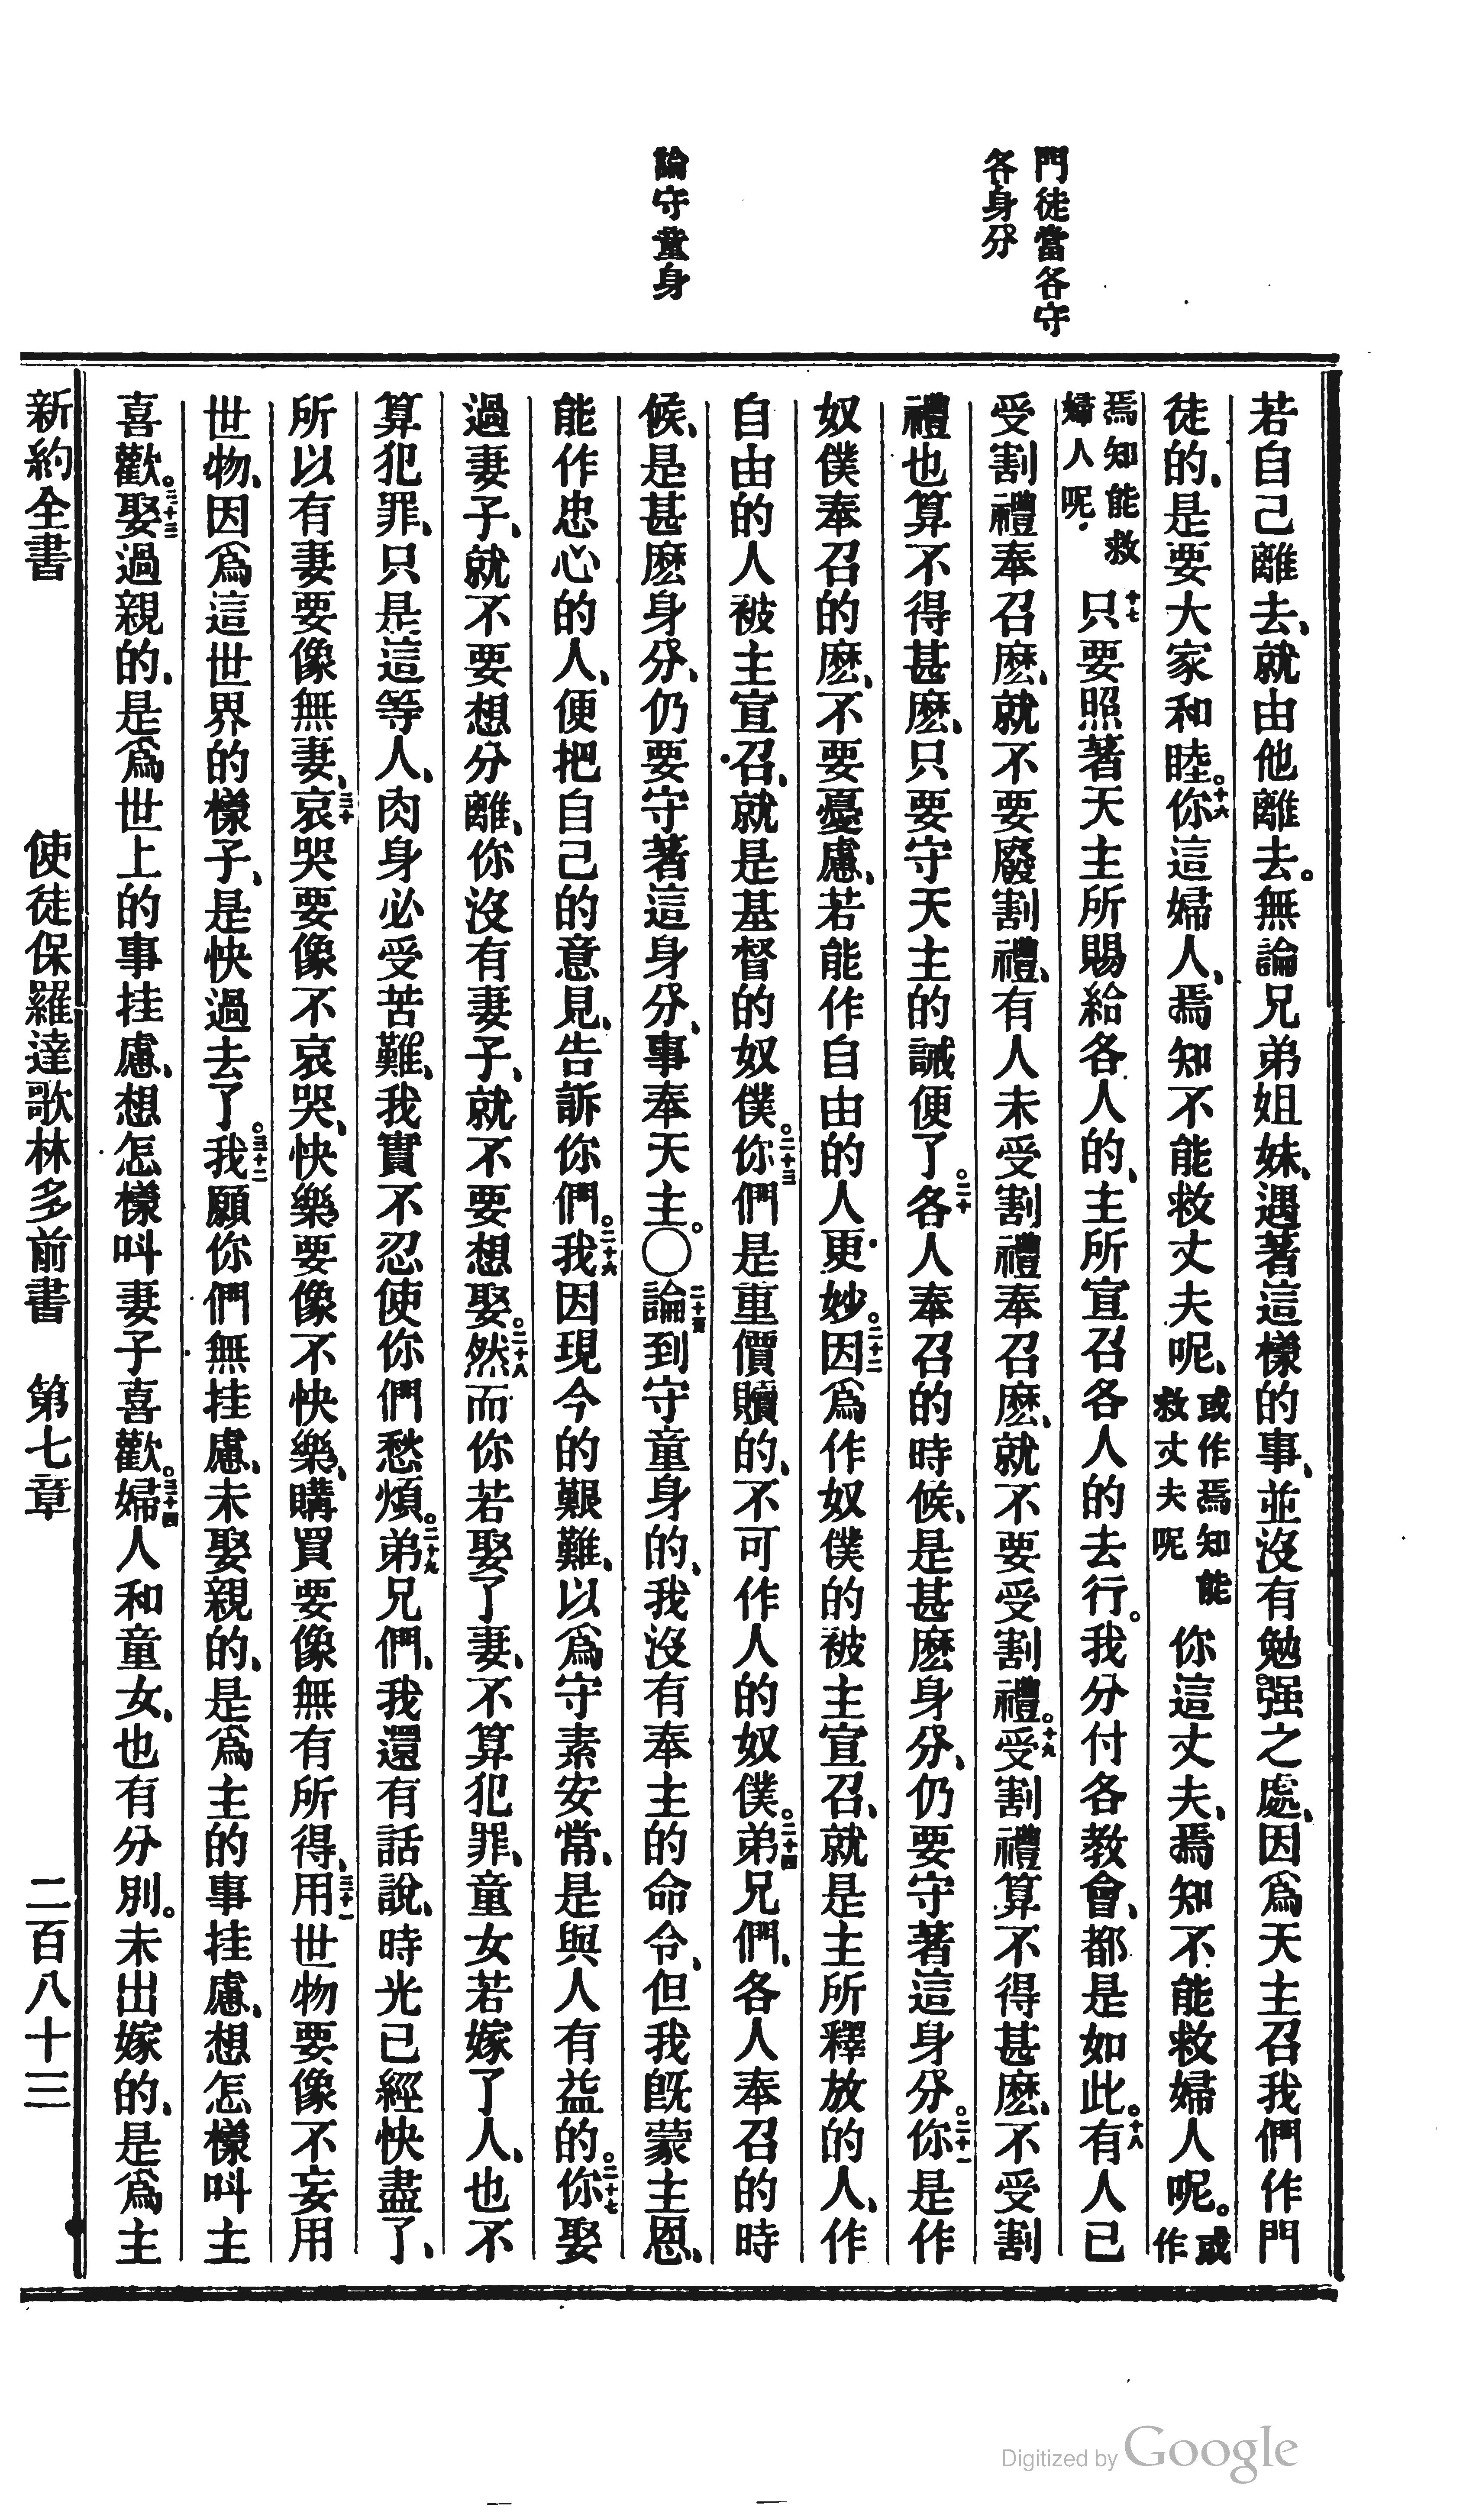 門徒當各守
各身分
論守童身
若自己離去、就由他離去。無論兄弟姐妹、遇著這樣的事、並沒有勉强之處、因爲天主召我們作門
徒的、是要大家和睦。十六你這婦人、焉知不能救丈夫呢、或作焉知能救丈夫呢你這丈夫、焉知不能救婦人呢。或作
焉知能救婦人呢十七只要照著天主所賜給各人的、主所宣召各人的去行。我分付各教會、都是如此。十八有人已
受割禮奉召麽、就不要廢割禮、有人未受割禮奉召麽、就不要受割禮。十九受割禮算不得甚麽、不受割
禮也算不得甚麽、只要守天主的誡便了。二十各人奉召的時候、是甚麽身分、仍要守著這身分。二十一你是作
奴僕奉召的麽、不要憂慮、若能作自由的人更妙。二十二因爲作奴僕的被主宣召、就是主所釋放的人、作
自由的人被主宣召、就是基督的奴僕。二十三你們是重價贖的、不可作人的奴僕。二十四弟兄們、各人奉召的時
候、是甚麽身分、仍要守著這身分、事奉天主。〇二十五論到守童身的、我沒有奉主的命令、但我旣蒙主恩、
能作忠心的人、便把自己的意見、告訴你們。二十六我因現今的艱難、以爲守素安常、是與人有益的。二十七你娶
過妻子、就不要想分離、你沒有妻子、就不要想娶。二十八然而你若娶了妻、不算犯罪、童女若嫁了人、也不
算犯罪、只是這等人、肉身必受苦難、我實不忍使你們愁煩。二十九弟兄們、我還有話說、時光已經快盡了、
所以有妻要像無妻、三十哀哭要像不哀哭、快樂要像不快樂、購買要像無有所得、三十一用世物要像不妄用
世物、因爲這世界的樣子、是快過去了。三十二我願你們無挂慮、未娶親的、是爲主的事挂慮、想怎樣叫主
喜歡。三十三娶過親的、是爲世上的事挂慮、想怎樣叫妻子喜歡。三十四婦人和童女、也有分別。未出嫁的、是爲主
新約全書 使徒保羅達歌林多前書 第七章 二百八十三
Digitized by Google